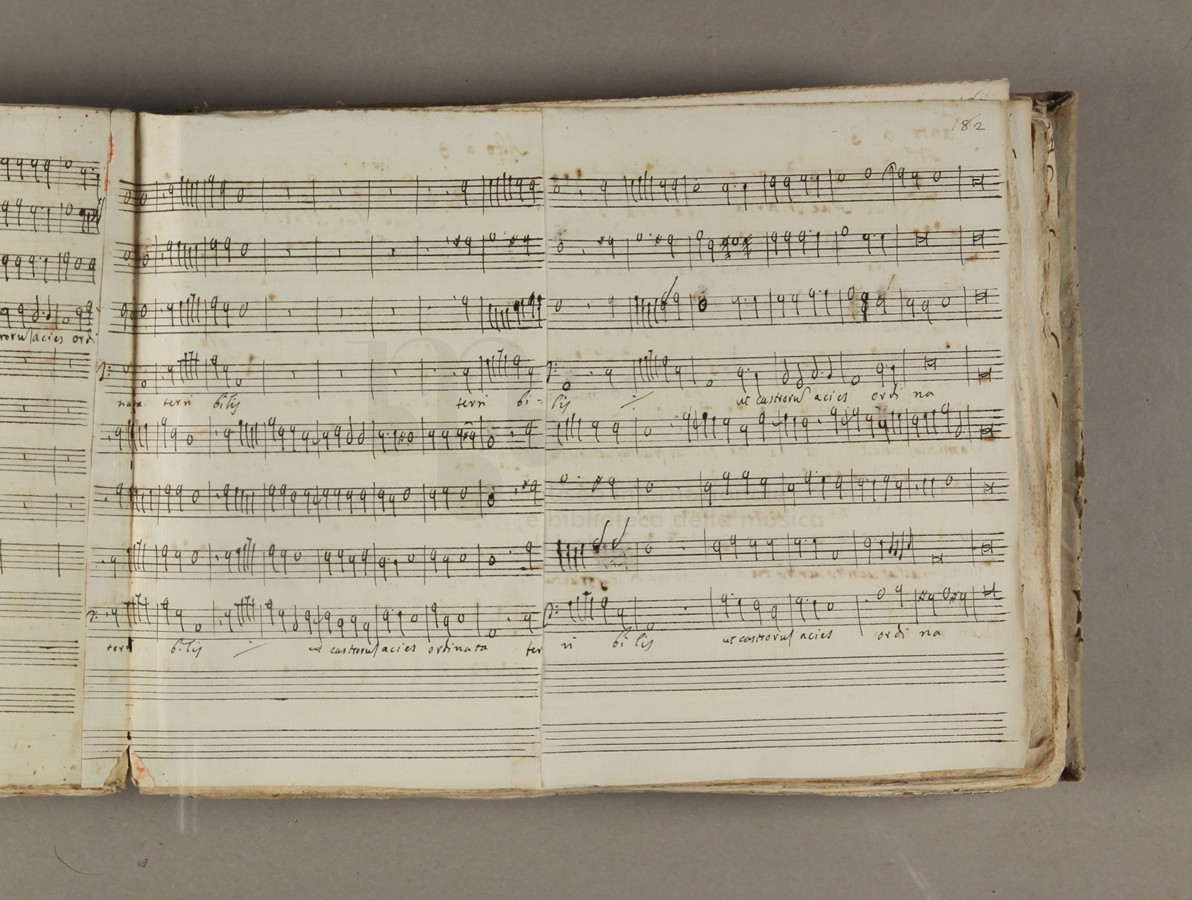 182
acies ordi
nata terri bilis terri bi- lis ut castroruʃ acies ordi na
e biblioteca della musica
terri bilis ut castroruʃ acies ordinata ter ri bi lis ut castroruʃ acies ordi na